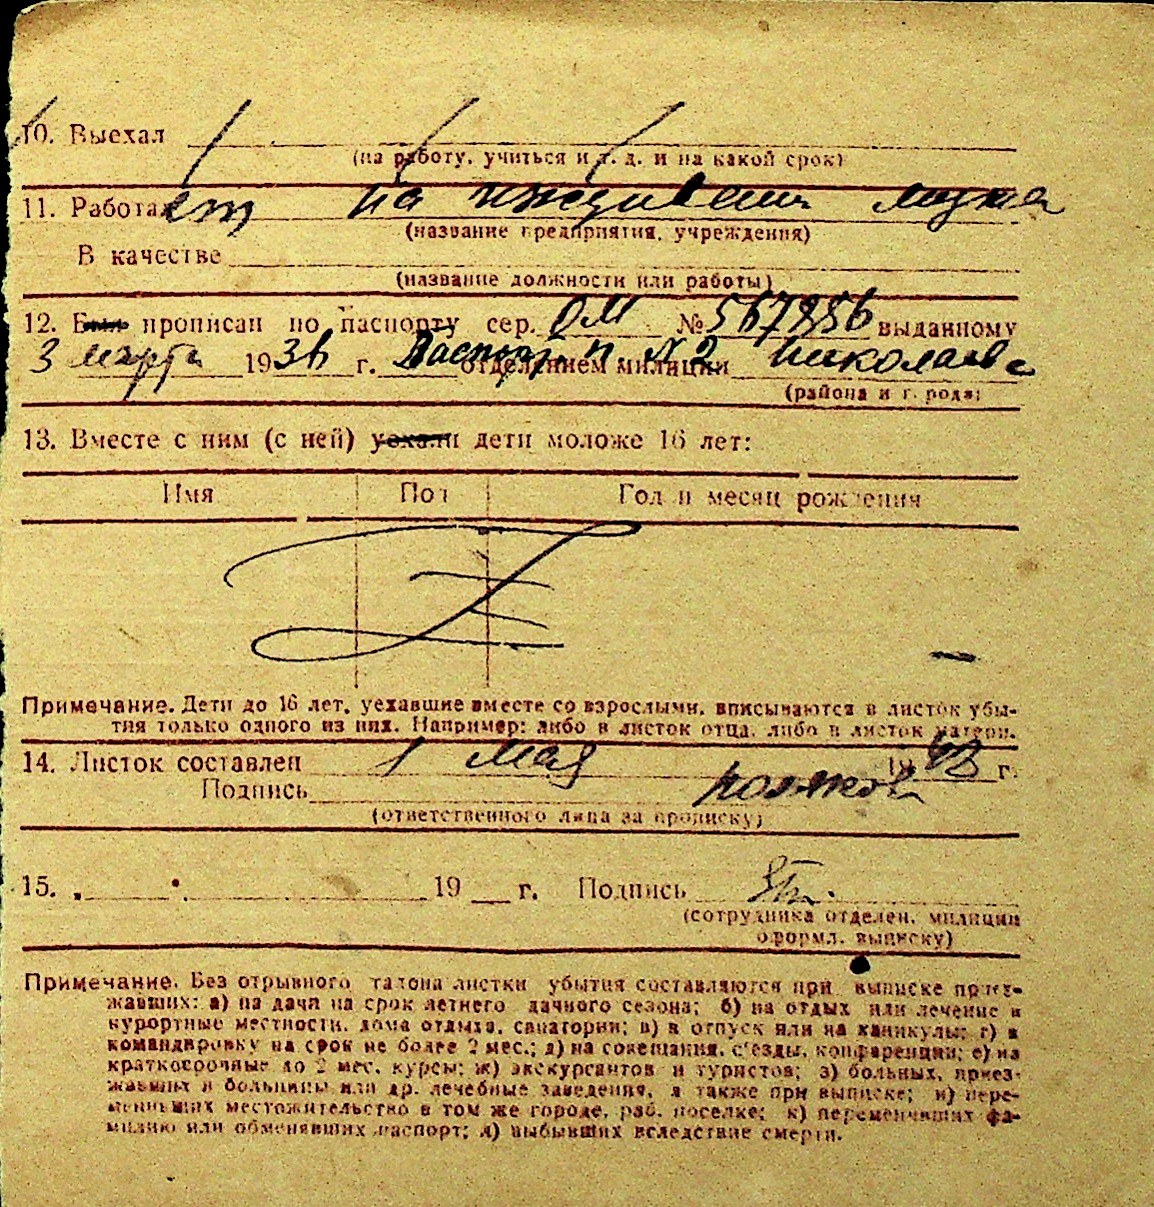 10. Выехал
(на работу, учиться и т. д. и на какой срок)
11. Работает на иждивении мужа
(название предприятия, учреждения)
В качестве
(название должности или работы)
12. Был прописан по паспорту сер. ОМ № 567856 выданному
3 марта 1936 г. Паспорт. п. N 2 отделением милиции Николаева
(района и города)
13. Вместе с ним (с ней) уехали дети моложе 16 лет:
Имя Пол Год и месяц рождения
Примечание. Дети до 16 лет, уехавшие вместе со взрослыми, вписываются в листок убы-
тия только одного из них. Например: либо в листок отца, либо в листок матери.
14. Листок составлен 1 мая 19 г.
Подпись
(ответственного лица за прописку)
15. „ “ 19 г. Подпись
(сотрудника отделен. милиции
оформл. выписку)
Примечание. Без отрывного талона листки убытия составляются при выписке приез-
жавших: а) на дачи на срок летнего дачного сезона; б) на отдых или лечение в
курортные местности, дома отдыха, санатории; в) в отпуск или на каникулы; г) в
командировку на срок не более 2 мес.; д) на совещания, с'езды, конференции; е) на
краткосрочные до 2 мес. курсы; ж) экскурсантов и туристов; з) больных, приез-
жавших в больницы или др. лечебные заведения, а также при выписке; и) пере-
менивших местожительство в том же городе, раб. поселке; к) переменивших фа-
милию или обменявших паспорт; л) выбывших вследствие смерти.